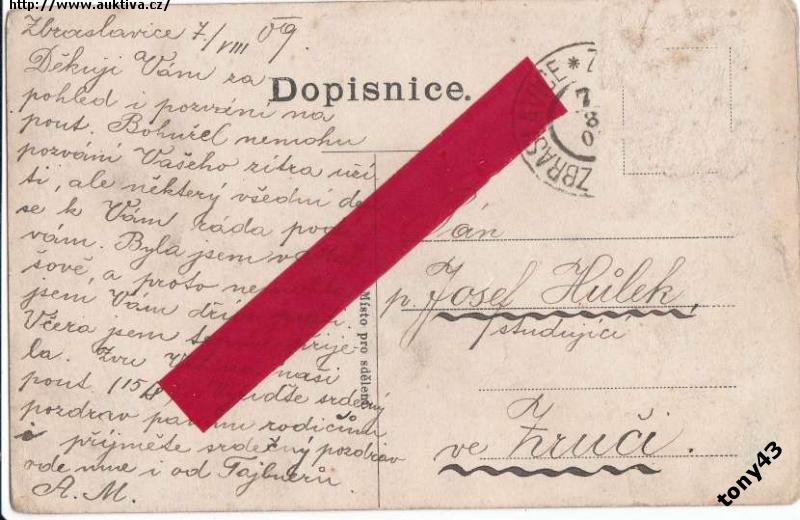 http://www.auktiva.cz/
Zbraslavice 7/VIII 09.
Děkuji Vám za
pohled i pozvání na
pout. Bohužel nemohu
pozvání Vašeho zítra uži-
ti, ale některý všední de
se k Vám ráda pod
vám. Byla jsem v
šově, a proto
jsem Vám dří
Včera jsem te přije-
la. Zvu naši
pout /15 srdečný
pozdrav rodičům
i přijměte srdečný pozdrav
ode mne i od Tajbnerů
A. M.
Dopisnice.
ZBRASLAVICE *
7
8
0
Místo pro sdělení
Pán
p. Josef Hůlek,
studující
ve Zruči.
tony43